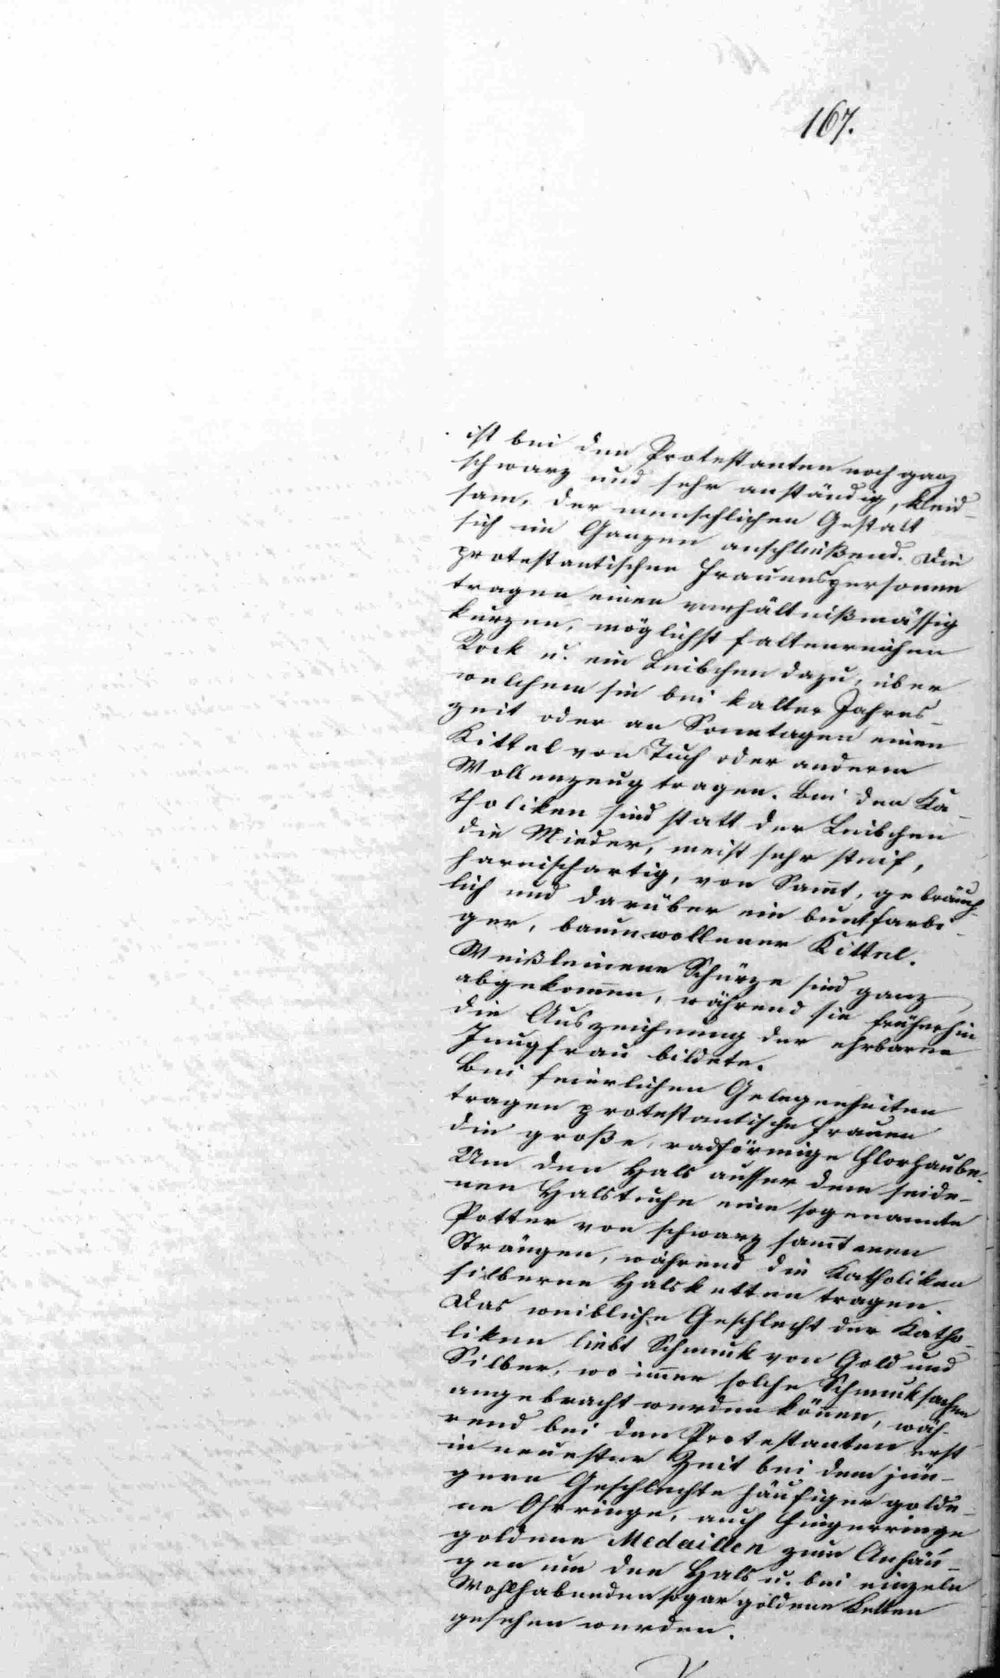 167.
ist bei den Protestanten noch ganz
schwarz und sehr anständig, kleid-
sam, der menschlichen Gestalt
sich im Ganzen anschließend. Die
protestantischen Frauenspersonen
tragen einen verhältnißmässig
kurzen, möglichst faltenreichen
Rock u. ein Leibchen dazu, über
welchem sie bei kalter Jahres-
zeit oder an Sonntagen einen
Kittel von Tuch oder anderem
Wollenzeug tragen. Bei den Ka-
tholiken sind statt der Leibchen
die Mieder, meist sehr steif,
harnischartig, von Sam̄t, gebräuch-
lich und darüber ein buntfarbi-
ger, baumwollener Kittel.
Weißleinene Schürze sind ganz
abgekom̄en, während sie früherhin
die Auszeichnung der ehrbaren
Jungfrau bildete.
Bei feierlichen Gelegenheiten
tragen protestantische Frauen
die große, radförmige Florhaube.
Um den Hals ausser dem seide-
nen Halstuche eine sogenannte
Potter von schwarz sam̄tenen
Strängen, während die Katholiken
silberne Halsketten tragen.
Das weibliche Geschlecht der Katho-
liken liebt Schmuk von Gold und
Silber, wo im̄er solche Schmuksachen
angebracht werden kön̄en, wäh-
rend bei den Protestanten erst
in neuester Zeit bei dem jün-
gern Geschlechte häufiger golde-
ne Ohrringe, auch Fingerringe
goldene Medaillen zum Anhän-
gen um den Hals u. bei einzeln
Wohlhabenden sogar goldene Ketten
gesehen werden.